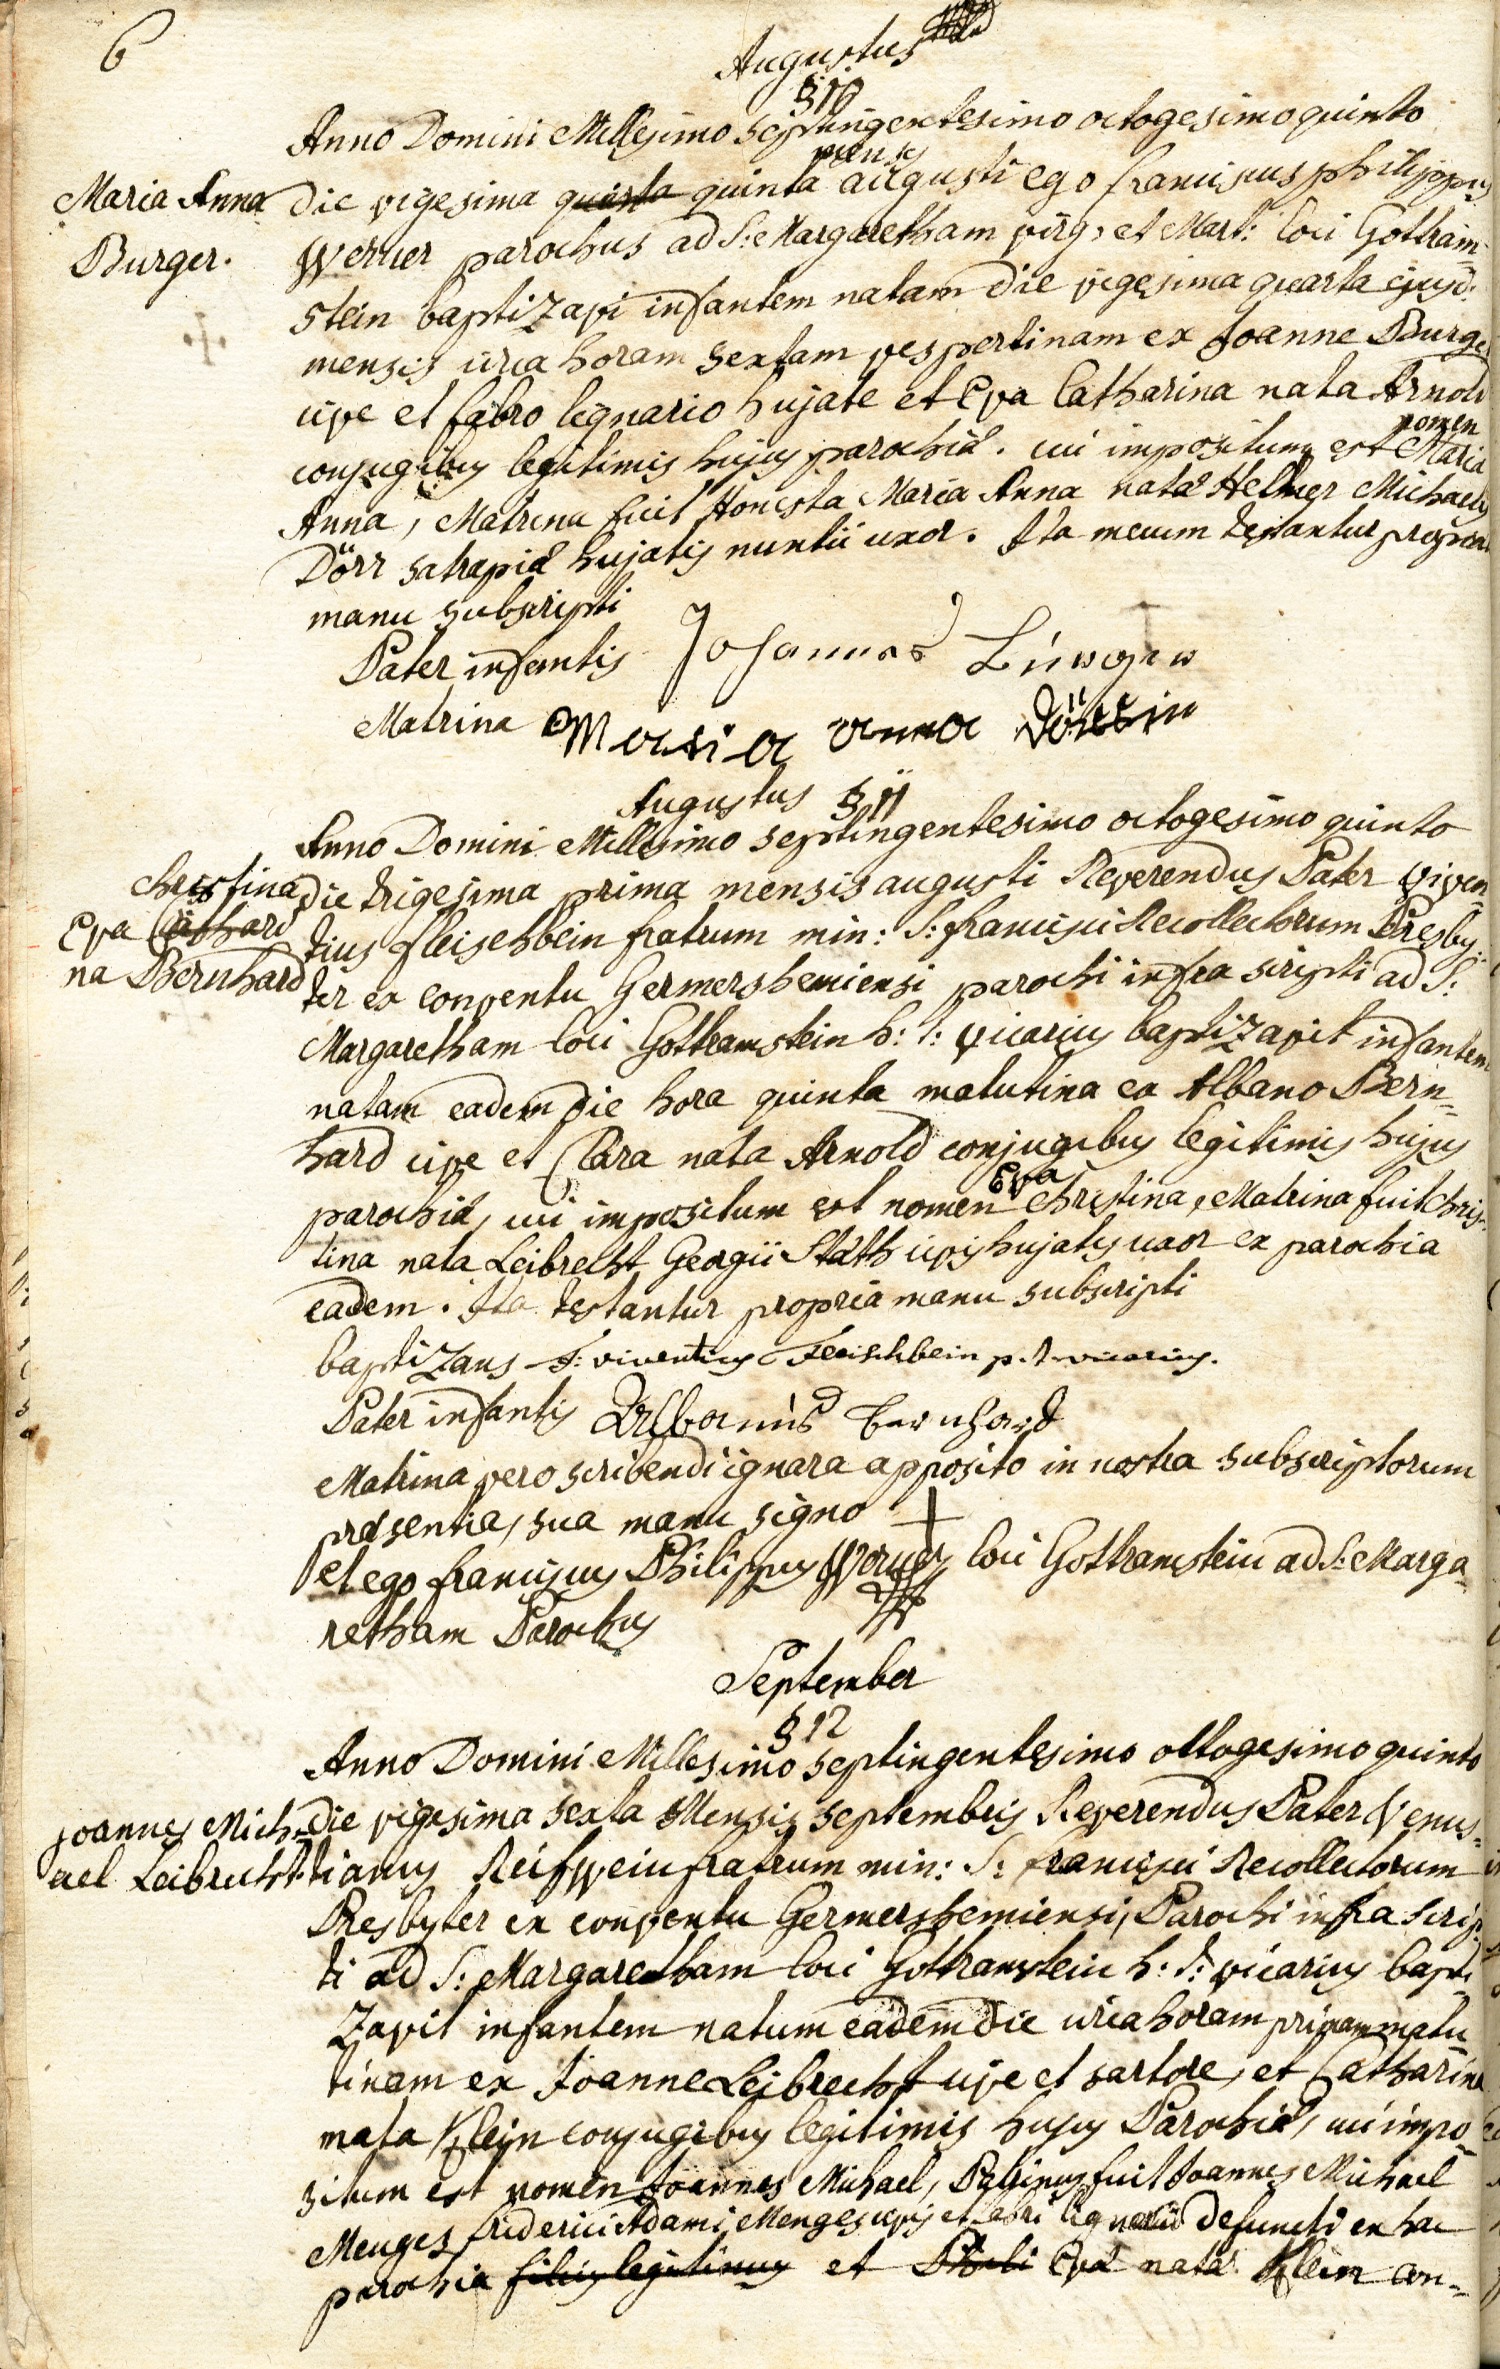 6
Augustus
§ 10
Anno Domini Millesimo Septingentesimo octogesimo quinto
Maria Anna
Burger.
mensis
die vigesima quarta quinta augusti ego franciscus philippus
Werner parochus ad S: Margaretham virg: et Mart: loci Gottram-
stein baptizavi infantem natam die vigesima quarta ejusd:
mensis circa horam sextam vespertinam ex Joanne Burger
cive et fabro lignario hujate et Eva Catharina nata Arnold
nomen
conjugibus legitimis hujus parochiæ. cui impositum est Maria
Anna, Matrina fuit Honesta Maria Anna nata Michaelis
Dörr satrapiæ hujatis nuntii uxor. Ita mecum testantur propria
manu subscripti
Pater infantis Johannes Burger
Matrina Maria anna Dörrin
Augustus § 11
Anno Domini Millesimo septingentesimo octogesimo quinto
Christina
Eva Cathari
na Bernhard
die trigesima prima mensis augusti Reverendus Pater Viven-
tius fleischbein fratrum min: S: francisci Recollectorum Presby-
ter ex conventu Germershemiensi parochi infra scripti ad S:
Margaretham loci Gottramstein h: t: vicarius baptizavit infantem
natam eadem die hora quinta matutina ex Albano Bern-
hard cive et Clara nata Arnold conjugibus legitimis hujus
Eva
parochiæ, cui impositum est nomen Christina, Matrina fuit Chris-
tina nata Leibrecht Georgii Stath civis hujatis uxor ex parochia
eadem. Ita testantur propria manu subscripti
baptizans F: viventius Fleischbein p. t. vicarius.
Pater infantis Albanus bernhard
Matrina vero scribendi ignara apposito in nostra subscriptorum
præsentia, sua manu signo +
et ego franciscus Philippus Werner loci Gottramstein ad S: Marga-
retham Parochus
September
§ 12
Anno Domini Millesimo septingentesimo octogesimo quinto
Joannes Mich-
ael Leibrecht.
die vigesima sexta Mensis septembris Reverendus Pater Venus-
tianus Reifwein fratrum min: S: francisci Recollectorum
Presbyter ex conventu Germershemiensi, Parochi infra scrip-
ti ad S: Margaretham loci Gottramstein h: t: vicarius bapti
zavit infantem natum eadem die circa horam primam matu
tinam ex Joanne Leibrecht cive et sartore, et Catharina
nata Klein conjugibus legitimis hujus Parochiæ, cui impo-
situm est nomen Joannes Michael, Patrinus fuit Joannes Michael
Menges friderici Adami Menges civis et fabri lignarii defuncti ex hac
parochia filius legitimus et Eva nata Klein con-